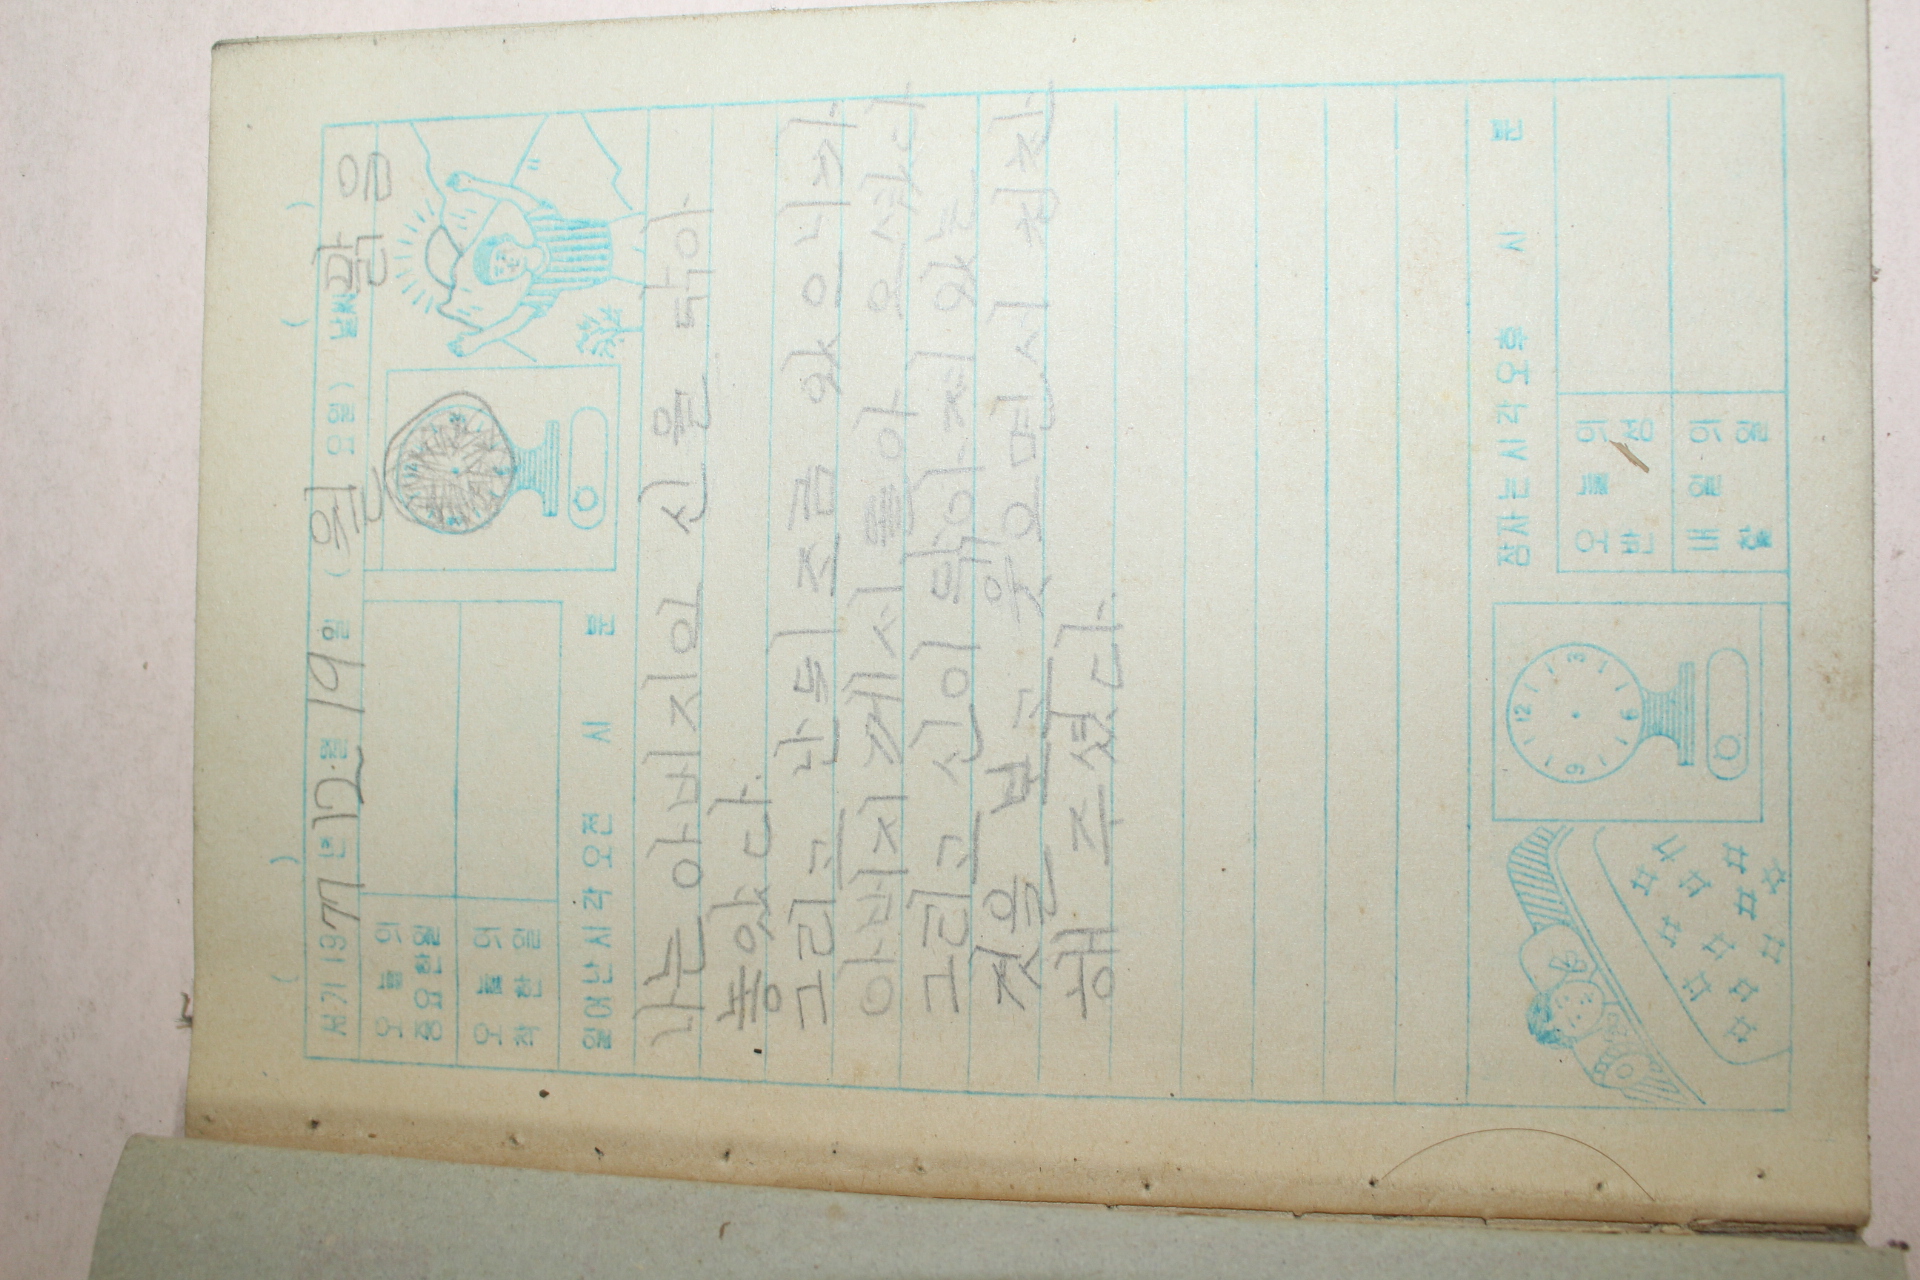 ( ) ( )
서기 1977년 12월 19일 (월요일) 날씨 맑음
오늘의
중요한일
오늘의
착한일
일어난시각 오전 시 분
나는 아버지의 신을 닦아
놓았다.
그리고 난 뒤 조금 있으니까
아버지께서 돌아 오셨다
그리고 신이 닦아져 있는
것을 보고 웃으면서 칭찬
해 주셨다.
12
3
6
9
잠자는시각 오후 시 분
오늘의
반성
내일의
할일